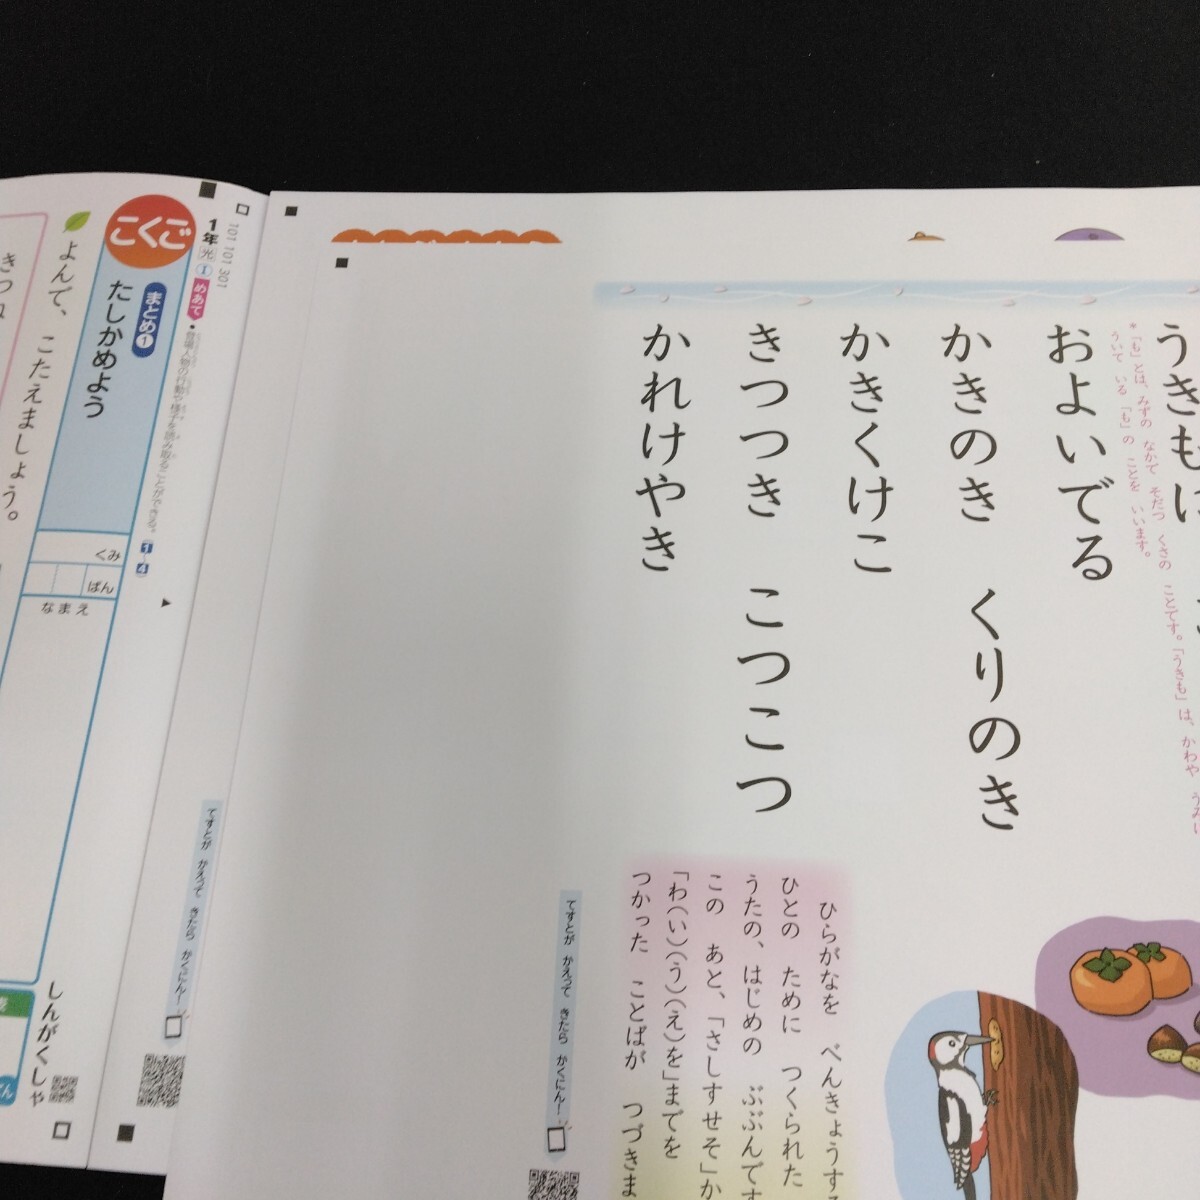 うきも
*「も」とは、みずの なかで そだつ くさの ことです。「うきも」は、かわや うみに
ういて いる 「も」の ことを いいます。
およいでる
かきのき くりのき
かきくけこ
きつつき こつこつ
かれけやき
ひらがなを べんきょうする
ひとの ために つくられた
うたの、はじめの ぶぶんです
この あと、「さしすせそ」か
「わ(い)(う)(え)を」までを
つかった ことばが つづきま
てすとが かえって きたら かくにん!
101 101 301
1年 光 1
めあて
・登場人物の行動や様子を読み取ることができる。
1
4
てすとが かえって きたら かくにん!
こくご
まとめ1
たしかめよう
くみ
ばん
なまえ
しんがくしゃ
よんで、こたえましょう。
きつね